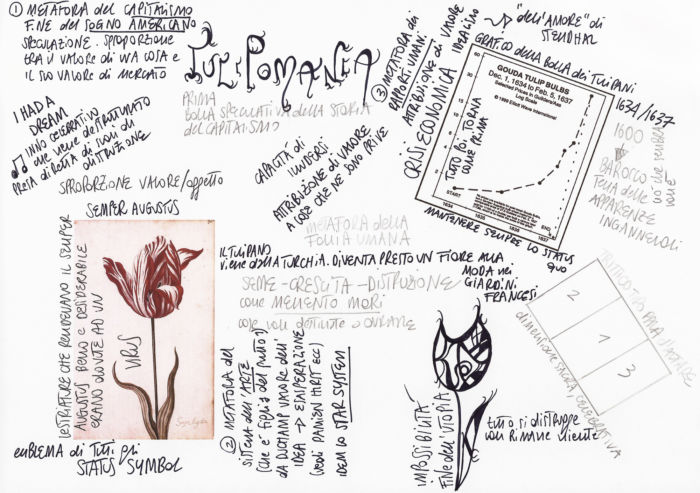 ① METAFORA del CAPITALISMO
FINE del SOGNO AMERICANO
SPECULAZIONE. SPROPORZIONE
TRA il VALORE di UNA COSA e
IL SUO VALORE di MERCATO
TULIPOMANIA
PRIMA
BOLLA SPECULATIVA della STORIA
del CAPITALISMO
③ METAFORA dei
RAPPORTI UMANI.
ATTRIBUZIONE di VALORE
IDEALISMO
CRISI ECONOMICA
TUTTO POI TORNA
COME PRIMA
"dell'AMORE" di
STENDHAL
GRAFICO della BOLLA dei TULIPANI
1634/1637
GOUDA TULIP BULBS
Dec. 1, 1634 to Feb. 5, 1637
Selected Prices in Guilders/Aas
Log Scale
© 1999 Elliott Wave International
START
END
1634
1635
1636
1637
MANTENERE SEMPRE LO STATUS
QUO
1600
BAROCCO
Tema delle
APPARENZE
INGANNEVOLI
I HAD A
DREAM
INNO CELEBRATIVO
che viene destrutturato
PRESA diretta di suoni di
DISTRUZIONE
SPROPORZIONE VALORE/oggetto
CAPACITÀ di
ILLUDERSI
ATTRIBUZIONE di VALORE
A COSE CHE NE SONO PRIVE
METAFORA della
FOLLIA UMANA
SEMPER AUGUSTUS
LE STRIATURE CHE RENDEVANO IL SEMPER
AUGUSTUS BELLO e DESIDERABILE
ERANO DOVUTE AD UN
VIRUS
EMBLEMA di TUTTI gli
STATUS SYMBOL
IL TULIPANO
viene dalla TURCHIA. DIVENTA PRESTO UN FIORE ALLA
MODA nei
GIARDINI
FRANCESI
SEME - CRESCITA - DISTRUZIONE
come MEMENTO MORI
② METAFORA del
SISTEMA dell'ARTE
(che è figlia del punto 1)
da DUCHAMP VALORE dell'
IDEA → ESASPERAZIONE
(vedi DAMIEN HIRST ECC)
IDEM LO STAR SYSTEM
IMPOSSIBILITÀ
FINE dell'UTOPIA
tutto si distrugge
non rimane niente
2
1
3
dimensione sacra, celebrativa